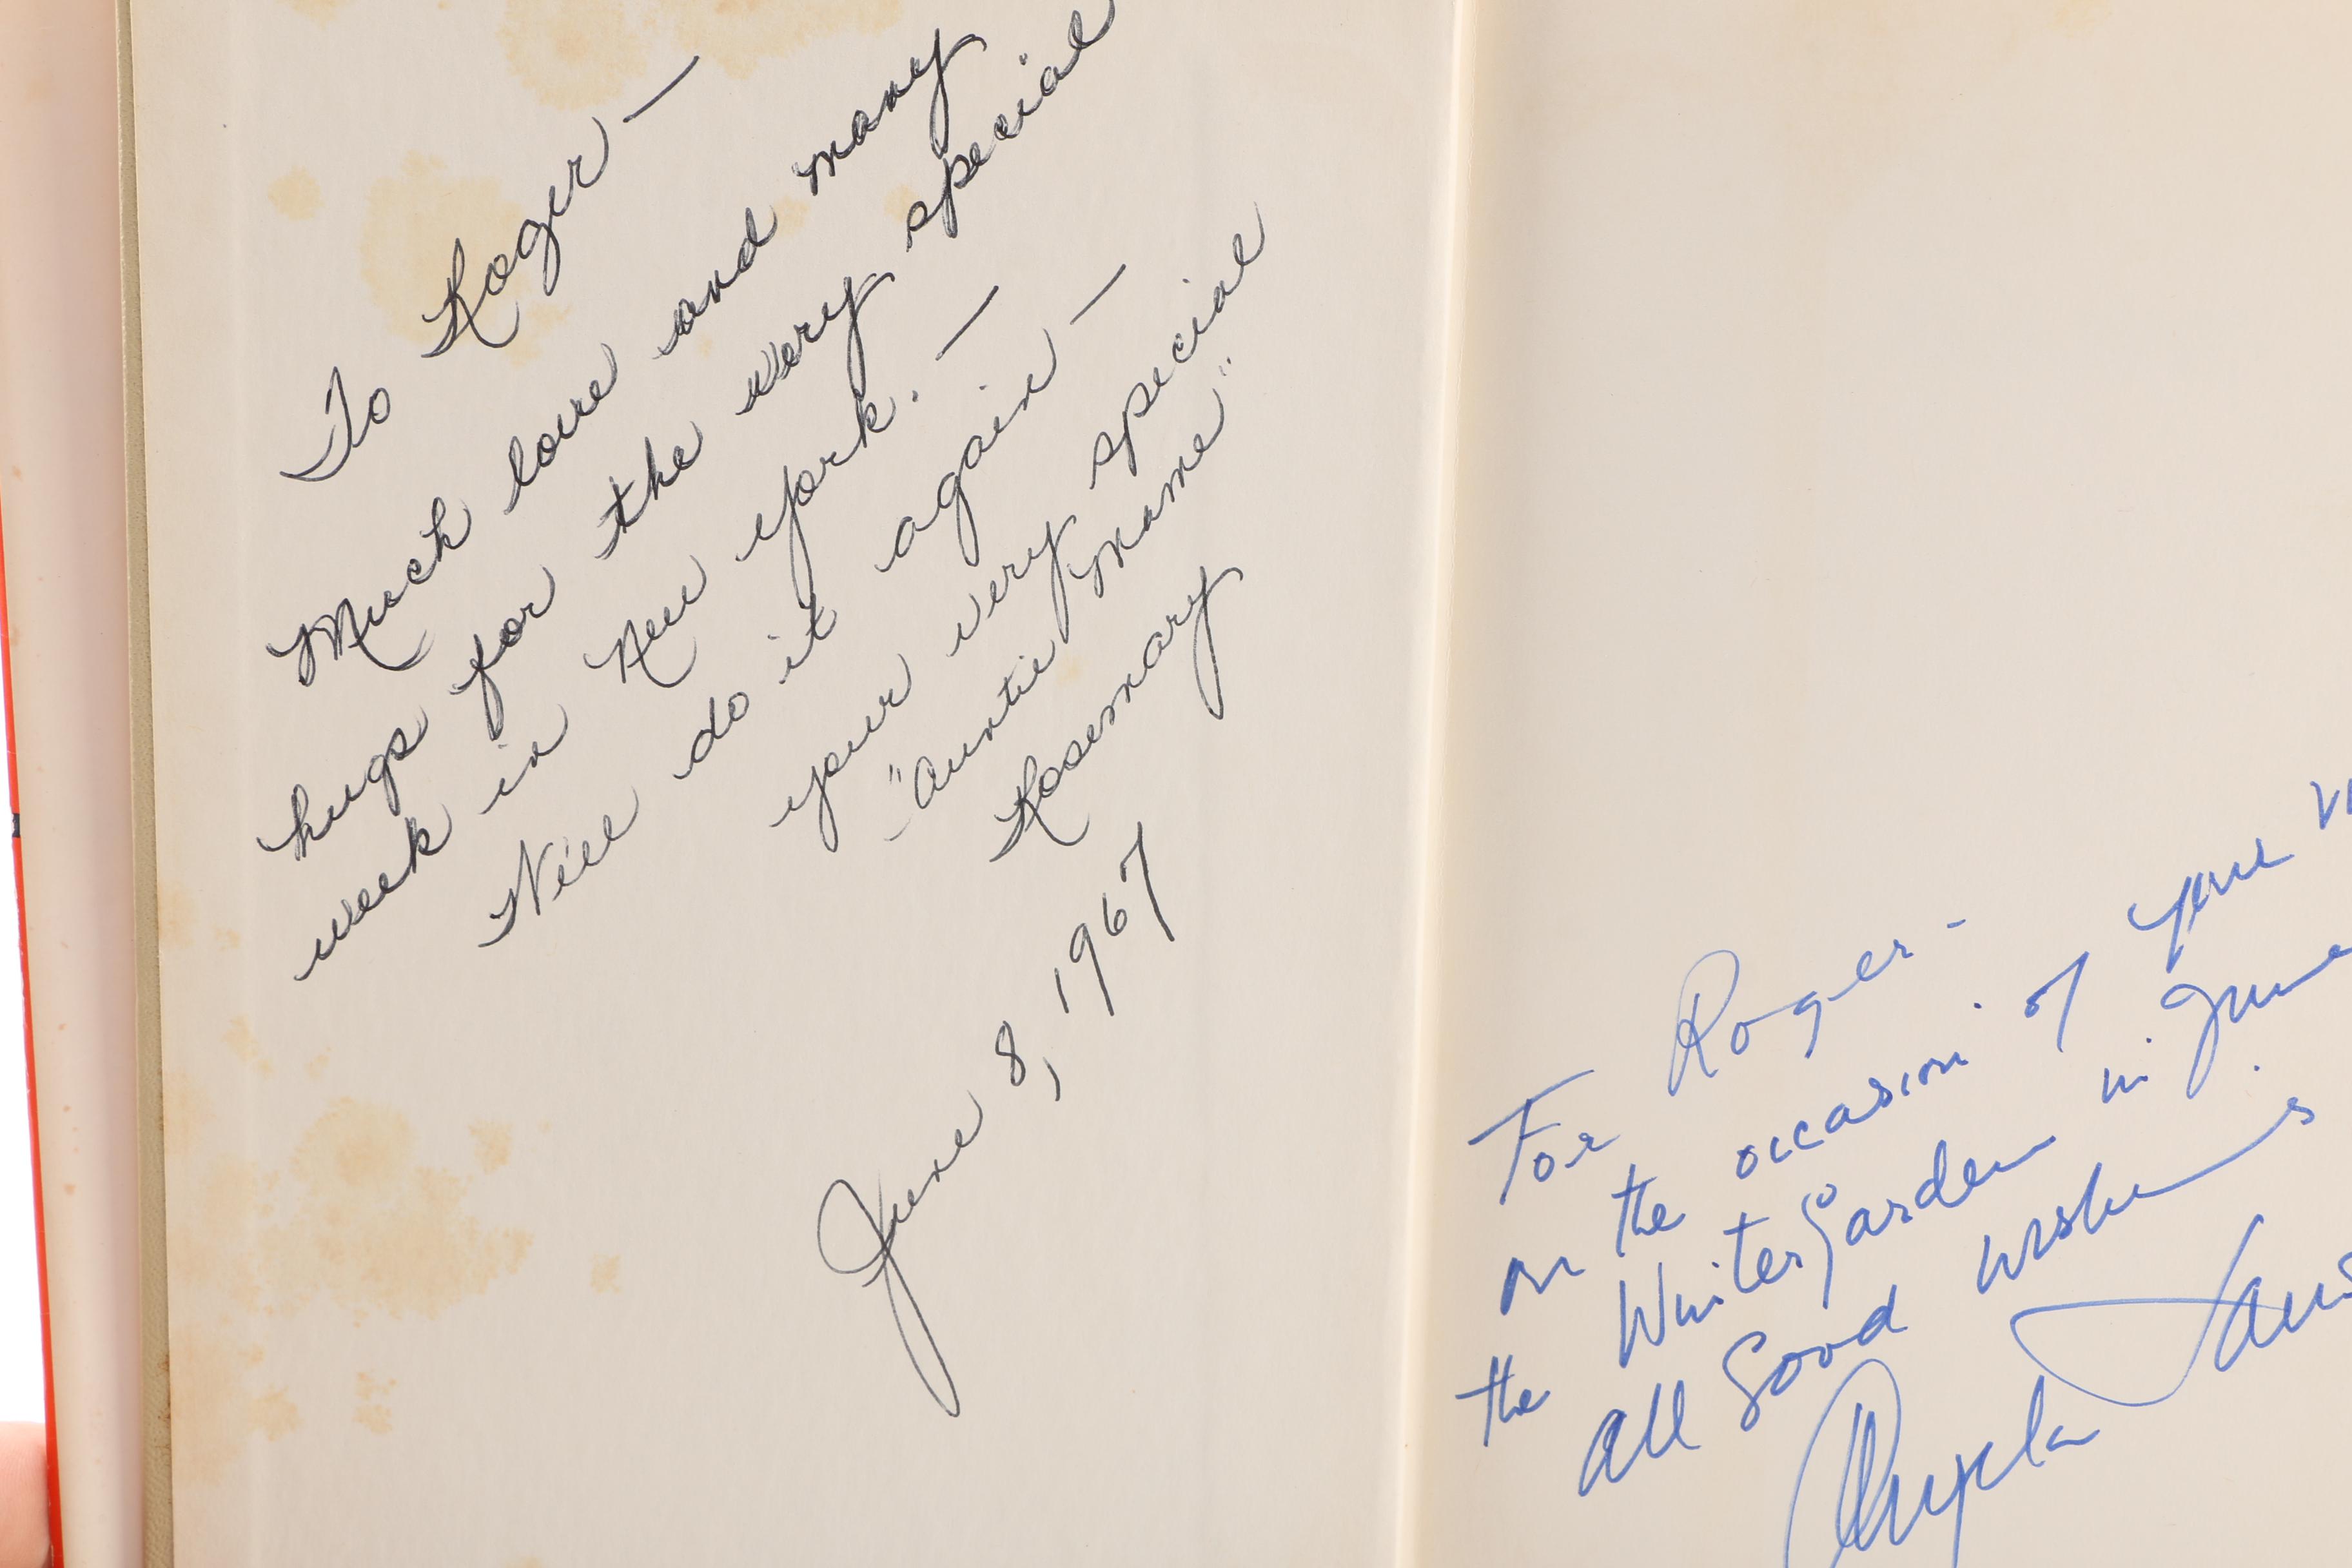 To Roger —
Much love and many
hugs for the very special
week in New York. —
We'll do it again —
your very special
"Auntie Mame"
Rosemary
June 8, 1967
For Roger -
on the occasion of your
the Winter Garden in June
all good wishes
Angela